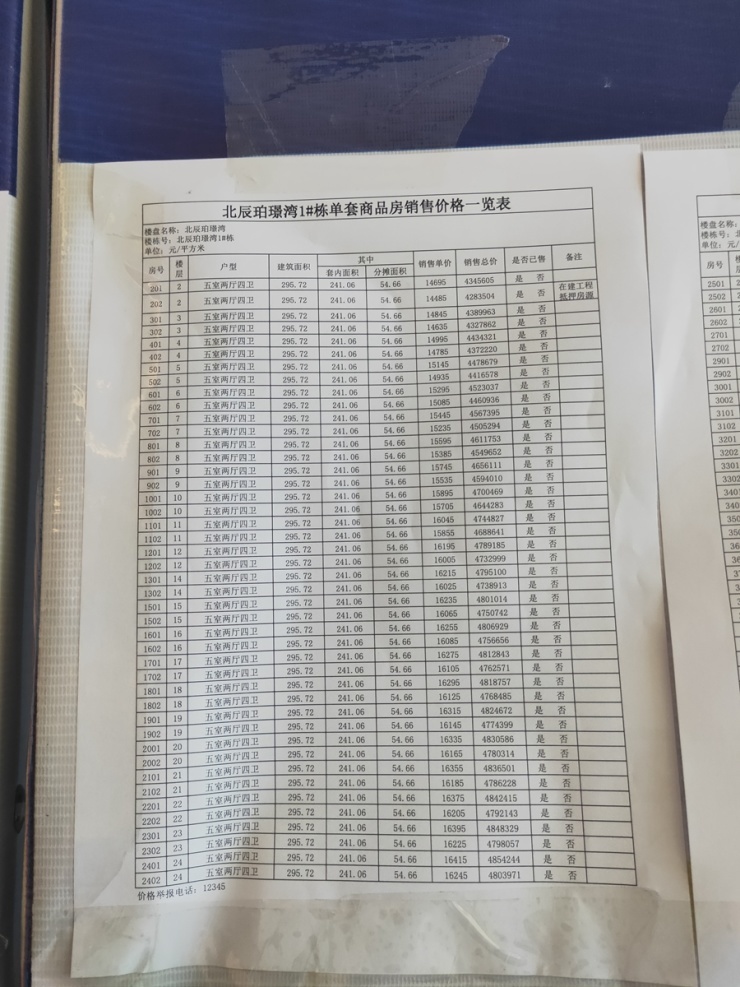 北辰珀璟湾1#栋单套商品房销售价格一览表
楼盘名称：北辰珀璟湾
楼栋号：北辰珀璟湾1#栋
单位：元/平方米
房号 楼层 户型 建筑面积 其中 套内面积 分摊面积 销售单价 销售总价 是否已售 备注
201 2 五室两厅四卫 295.72 241.06 54.66 14695 4345605 是 否
202 2 五室两厅四卫 295.72 241.06 54.66 14485 4283504 是 否 在建工程抵押房源
301 3 五室两厅四卫 295.72 241.06 54.66 14845 4389963 是 否
302 3 五室两厅四卫 295.72 241.06 54.66 14635 4327862 是 否
401 4 五室两厅四卫 295.72 241.06 54.66 14995 4434321 是 否
402 4 五室两厅四卫 295.72 241.06 54.66 14785 4372220 是 否
501 5 五室两厅四卫 295.72 241.06 54.66 15145 4478679 是 否
502 5 五室两厅四卫 295.72 241.06 54.66 14935 4416578 是 否
601 6 五室两厅四卫 295.72 241.06 54.66 15295 4523037 是 否
602 6 五室两厅四卫 295.72 241.06 54.66 15085 4460936 是 否
701 7 五室两厅四卫 295.72 241.06 54.66 15445 4567395 是 否
702 7 五室两厅四卫 295.72 241.06 54.66 15235 4505294 是 否
801 8 五室两厅四卫 295.72 241.06 54.66 15595 4611753 是 否
802 8 五室两厅四卫 295.72 241.06 54.66 15385 4549652 是 否
901 9 五室两厅四卫 295.72 241.06 54.66 15745 4656111 是 否
902 9 五室两厅四卫 295.72 241.06 54.66 15535 4594010 是 否
1001 10 五室两厅四卫 295.72 241.06 54.66 15895 4700469 是 否
1002 10 五室两厅四卫 295.72 241.06 54.66 15705 4644283 是 否
1101 11 五室两厅四卫 295.72 241.06 54.66 16045 4744827 是 否
1102 11 五室两厅四卫 295.72 241.06 54.66 15855 4688641 是 否
1201 12 五室两厅四卫 295.72 241.06 54.66 16195 4789185 是 否
1202 12 五室两厅四卫 295.72 241.06 54.66 16005 4732999 是 否
1301 14 五室两厅四卫 295.72 241.06 54.66 16215 4795100 是 否
1302 14 五室两厅四卫 295.72 241.06 54.66 16025 4738913 是 否
1501 15 五室两厅四卫 295.72 241.06 54.66 16235 4801014 是 否
1502 15 五室两厅四卫 295.72 241.06 54.66 16065 4750742 是 否
1601 16 五室两厅四卫 295.72 241.06 54.66 16255 4806929 是 否
1602 16 五室两厅四卫 295.72 241.06 54.66 16085 4756656 是 否
1701 17 五室两厅四卫 295.72 241.06 54.66 16275 4812843 是 否
1702 17 五室两厅四卫 295.72 241.06 54.66 16105 4762571 是 否
1801 18 五室两厅四卫 295.72 241.06 54.66 16295 4818757 是 否
1802 18 五室两厅四卫 295.72 241.06 54.66 16125 4768485 是 否
1901 19 五室两厅四卫 295.72 241.06 54.66 16315 4824672 是 否
1902 19 五室两厅四卫 295.72 241.06 54.66 16145 4774399 是 否
2001 20 五室两厅四卫 295.72 241.06 54.66 16335 4830586 是 否
2002 20 五室两厅四卫 295.72 241.06 54.66 16165 4780314 是 否
2101 21 五室两厅四卫 295.72 241.06 54.66 16355 4836501 是 否
2102 21 五室两厅四卫 295.72 241.06 54.66 16185 4786228 是 否
2201 22 五室两厅四卫 295.72 241.06 54.66 16375 4842415 是 否
2202 22 五室两厅四卫 295.72 241.06 54.66 16205 4792143 是 否
2301 23 五室两厅四卫 295.72 241.06 54.66 16395 4848329 是 否
2302 23 五室两厅四卫 295.72 241.06 54.66 16225 4798057 是 否
2401 24 五室两厅四卫 295.72 241.06 54.66 16415 4854244 是 否
2402 24 五室两厅四卫 295.72 241.06 54.66 16245 4803971 是 否
价格举报电话：12345
楼盘名称：
楼栋号：
单位：元/
房号
2501
2502
2601
2602
2701
2702
2901
2902
3001
3002
3101
3102
3201
3202
3301